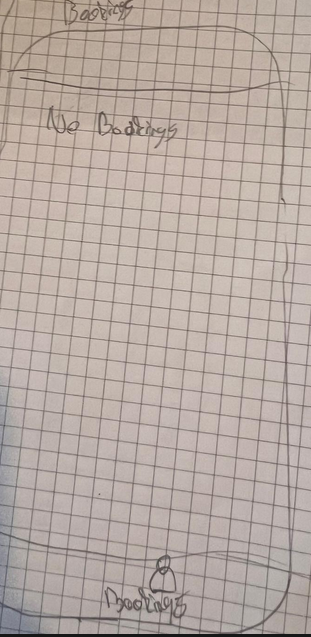 Bookings
No Bookings
Bookings